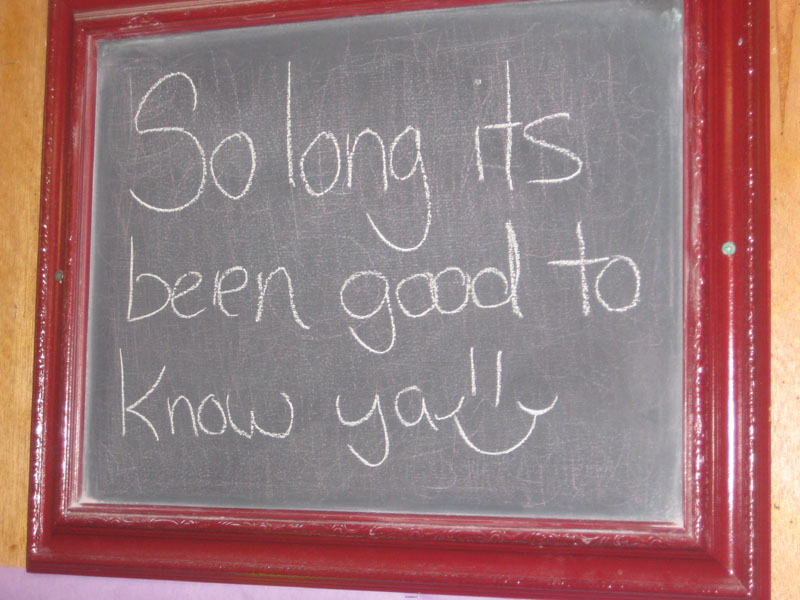 So long its
been good to
know ya